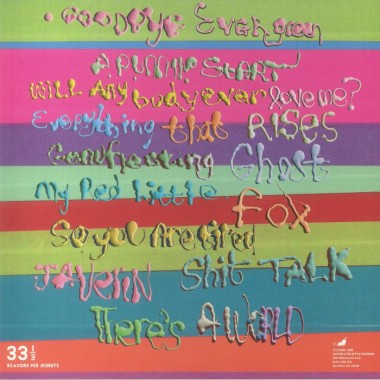 . GOODBYE Evergreen
A RUNNING START
Will Anybody ever love me?
Everything that RISES
Genuflecting Ghost
My Red Little Fox
So you Are tired
JAVELIN Shit TALK
There's A WORLD
33 1/3
REASONS PER MINUTE